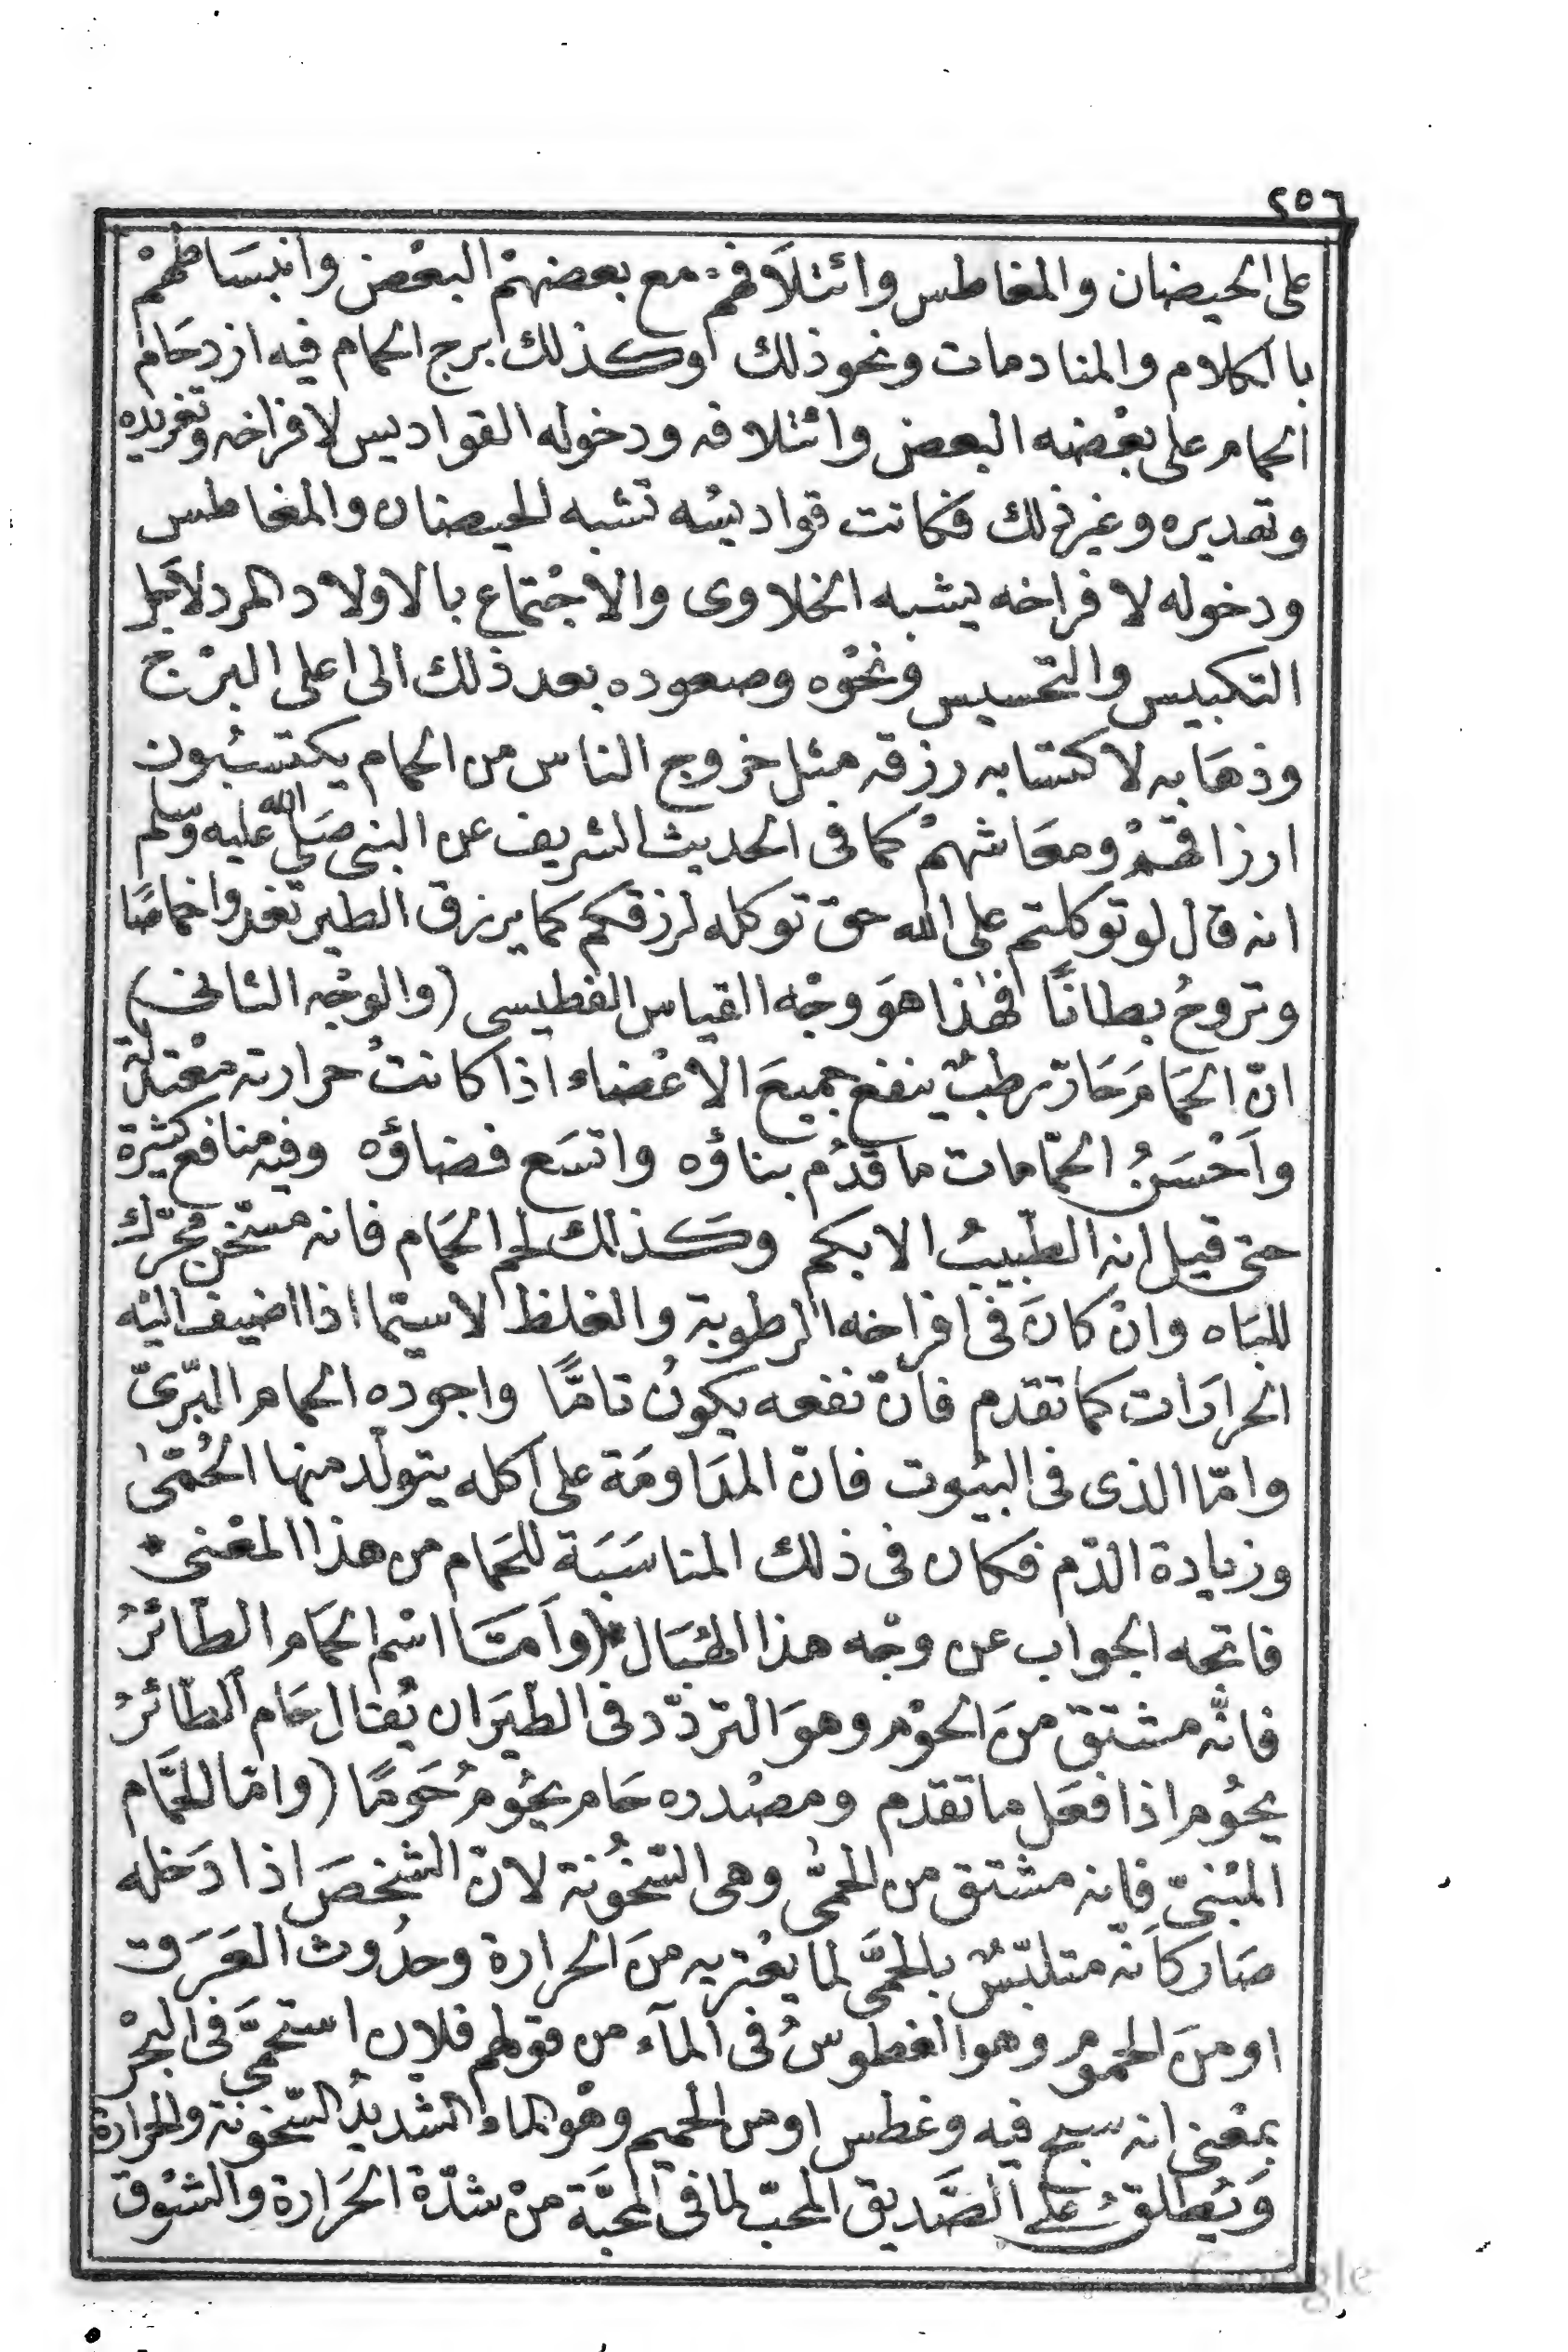 ٢٥٦
على الحيضان والمغاطس وائتلافهم مع بعضهم البعض وانبساطهم
بالكلام والمنادمات ونحو ذلك وكذلك ابرج الحمام فيه ازدحام
الحمام على بعضه البعض وائتلافه ودخوله القواديس لافراخه وتغريده
وتهديره وغير ذلك فكانت قواديسه تشبه الحيضان والمغاطس
ودخوله لافراخه يشبه الخلاوى والاجتماع بالاولاد المرد لاجل
التكبيس والتحسيس ونحْوه وصعوده بعد ذلك الى اعلى البرْج
وذهَابه لاكتسابه رزقه مثل خروج الناس من الحمام يكتسبُون
ارزاقهمْ ومعَاشهمْ كما فى الحديث الشريف عن النبى صَلى الله عليه وسلم
انه قال لو توكلتم على الله حق توكله لرزقكم كما يرزق الطير تغدوا خماصًا
وتروحُ بطانًا فهٰذا هوَ وجْه القياس الفطيسى (والوجْه الثانى)
انّ الحمَامَ حَارّ رطبٌ ينفع جميعَ الاعْضاء اذا كانتْ حرارته معْتدلة
واَحْسَنُ الحمّامات ما قدُم بناؤه واتسَع فضاؤه وفيه منافع كثيرة
حتى قيل انه الطّبيبُ الابكم وكَذلك لحم الحمَام فانه مسّخن محرّك
للبَاه وانْ كانَ فى افراخه الرطوبة والغلظ لاسيّما اذا اضيف اليْه
الحرارَات كما تقدم فانّ نفعه يكونُ تامًّا واجوده الحمام البّرىّ
وامّا الذى فى البيُوت فانّ المدَاومَة على اكله يتولّد منها الحُمّىٰ
وزيادة الدّم فكان فى ذلك المناسَبَة للحَمام من هذا المعْنى *
فاتجه الجواب عن وجْه هذا الهبَال * (واَمَّا اسْم الحمَام الطّائرُ
فانّه مشتق منَ الحوْم وهوَ التردّد فى الطيَران يُقال حَام الطّائرُ
يحُوم اذا فعَل ما تقدّم ومصْدره حَام يحُومُ حَومًا (وامّا الحمَّام
المبْنىّ فانه مشتق من الحمّٰى وهى السّخُونة لانّ الشخصَ اذا دَخله
صَار كاَنّه متلبّسٌ بالحمَّى لما يعْتريه منَ الحرارة وحدُوث العَرَق
او منَ الحموم وهو الغطوسُ فى المآء من قولهم فلان استحمَّى فى البحْر
بمعْنى انه سبح فيه وغطس او من الحميم وهْو الماء الشديدُ السّخونة والحرارة
وَيُطلقُ على الصَّديق المحبّ لما فى المحبَّة منْ شدّة الحَرارة والشوْق